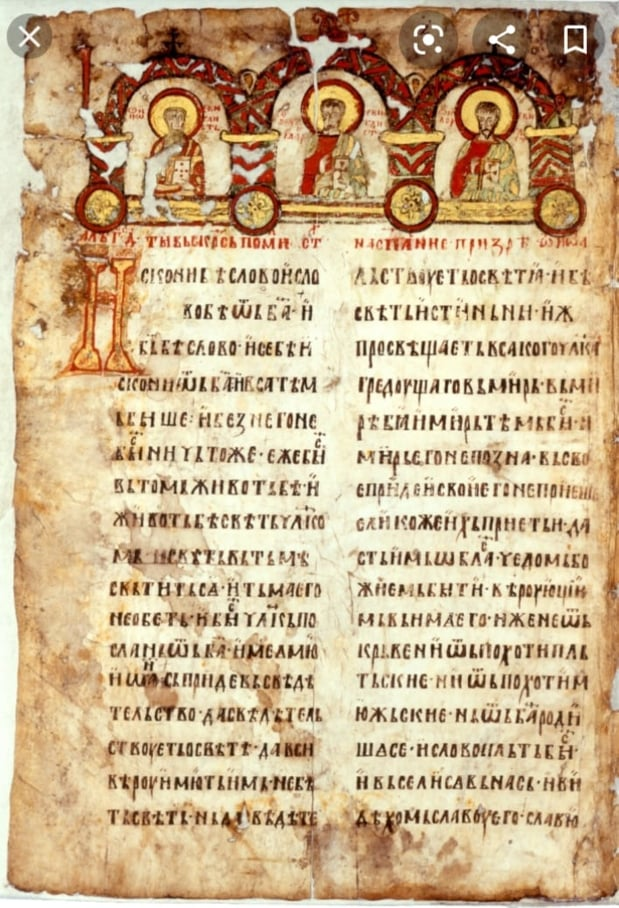 И
сконибѣсловоисло
вобѣѿьба҃·и
б҃ьбѣслово·исебѣи
скониѿьба҃ивсатѣм
ьбыше·ибезнегоне
быничьтоже·ежебы
вьтомьживотьбѣ·и
животьбѣсвѣтьчл҃ко
мь·исвѣтьвьтьмѣ
свѣтитьса·итьмаего
необеть·ибычл҃кьпо
сланьѿьба҃·имеѥмю
сьпридевьсвѣдѣ
тельство·дасвѣдѣтель
ствоуетьосвѣтѣ·давси
вѣроуимютьимь·небѣ
тьсвѣть·ньдасвѣдѣте
льствоуетьосвѣтѣ·ибѣ
свѣтьистиньни·иж
просвѣщаетьвсакогочл҃ка
гредоущаговьмирь·вьми
рѣбиимирьтѣмьбы·и
мирьегонепозна·вьсво
епридеисвоиегонепоиеше
еликожеихьприетьи·да
стьимьѡбла·чедомьбо
жиемьбыти·вѣроующии
мьвьимаего·иженеѿь
крьвениѿьпохотипль
тьские·ниѿьпохотим
южьские·ньѿьба҃роди
шасе·исловопльтьбы·
ивьселисавьнась·иви
дѣхомьславоуего·славю